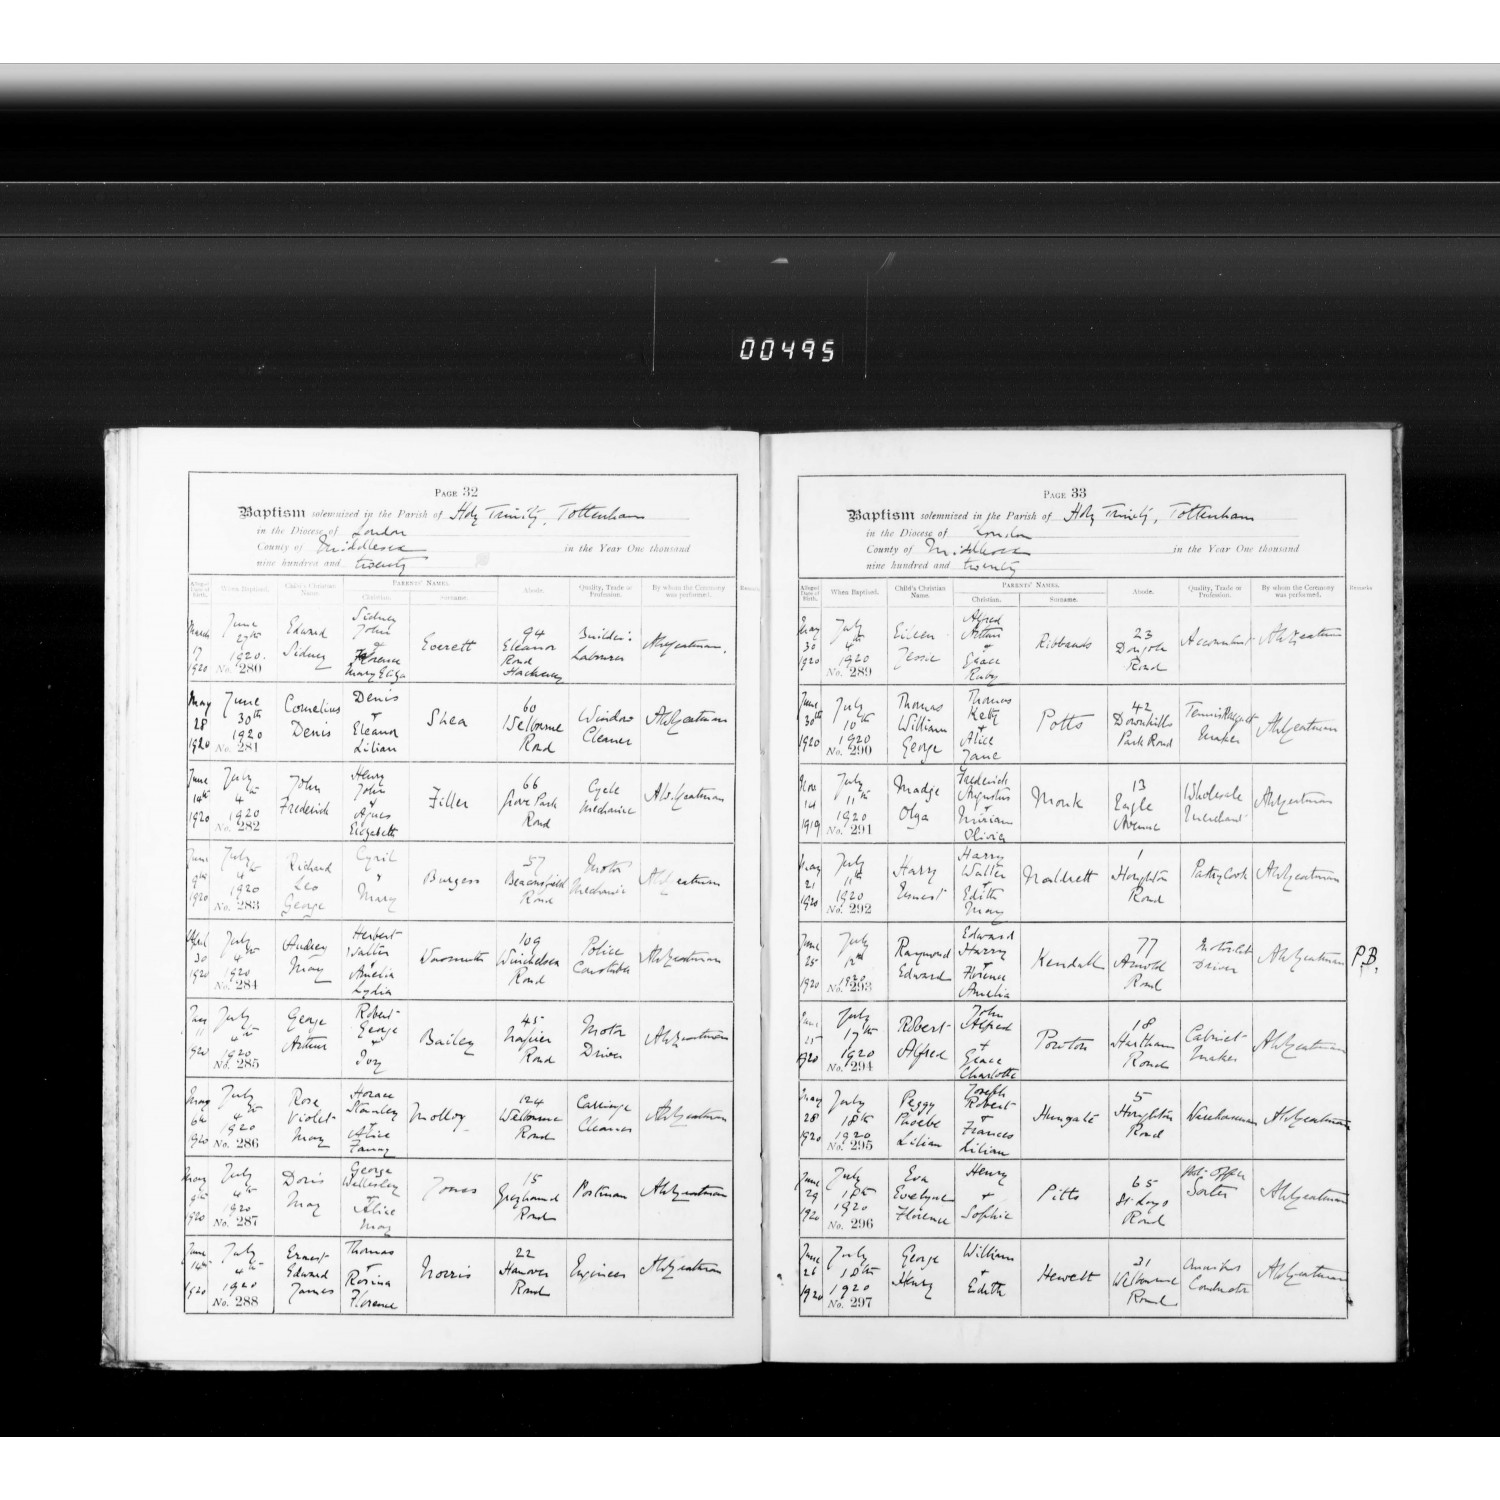 00495
PAGE 32
Baptism solemnized in the Parish of Holy Trinity, Tottenham
in the Diocese of London
County of Middlesex in the Year One thousand
nine hundred and twenty
Alleged Date of Birth. When Baptized. Child's Christian Name. PARENTS' NAMES. Christian. Surname. Abode. Quality, Trade or Profession. By whom the Ceremony was performed. Remarks
March 17 1920 June 27th 1920. No. 280 Edward Sidney Sidney John + Florence Mary Eliza Everett 94 Eleanor Road Hackney Builder's Labourer AWYeatman.
May 28 1920 June 30th 1920 No. 281 Cornelius Denis Denis + Eleanor Lilian Shea 60 Welbourne Road Window Cleaner AWYeatman
June 14th 1920 July 4th 1920 No. 282 John Frederick Henry John + Agnes Elizabeth Filler 66 Grove Park Road Cycle Mechanic A.W.Yeatman
June 9th 1920 July 4th 1920 No. 283 Richard Leo George Cyril " Mary Burgess 57 Beaconsfield Road Motor Mechanic AWYeatman
April 30 1920 July 4th 1920 No. 284 Audrey May Herbert Walter + Amelia Lydia 109 Winchelsea Road Police Constable AWYeatman
1920 July 4th 1920 No. 285 George Arthur Robert George + Ivy Bailey 45 Napier Road Motor Driver AWYeatman
May 6th 1920 July 4th 1920 No. 286 Rose Violet May Horace Stanley + Alice Fanny Molloy 124 Welbourne Road Carriage Cleaner AWYeatman
May 9th 1920 July 4th 1920 No. 287 Doris May George Wellesley + Alice May Jones 15 Greyhound Road Postman AWYeatman
June 14th 1920 July 4th 1920 No. 288 Ernest Edward James Thomas + Rosina Florence Norris 22 Hanover Road Engineer AWYeatman
PAGE 33
Baptism solemnized in the Parish of Holy Trinity, Tottenham
in the Diocese of London
County of Middlesex in the Year One thousand
nine hundred and twenty
Alleged Date of Birth. When Baptized. Child's Christian Name. PARENTS' NAMES. Christian. Surname. Abode. Quality, Trade or Profession. By whom the Ceremony was performed. Remarks
May 30 1920 July 4th 1920 No. 289 Eileen Jessie Alfred Arthur + Grace Ruby Ribbands 23 Dongola Road Accountant AWYeatman
June 30th 1920 July 10th 1920 No. 290 Thomas William George Thomas + Alice Jane Potts 42 Downhills Park Road Tennis Racquet Maker AWYeatman
Nov 14 1919 July 11th 1920 No. 291 Madge Olga Frederick Augustus + Miriam Olivia Monk 13 Eagle Avenue Wholesale Merchant AWYeatman
May 21 1920 July 11th 1920 No. 292 Harry Ernest Harry Walter + Edith May Naldrett 1 Houghton Road Pastry Cook AWYeatman
June 25 1920 July 12th 1920 No. 293 Raymond Edward Edward Harry + Florence Amelia Kendall 77 Arnold Road Driver AWYeatman P.B.
1920 July 17th 1920 No. 294 Robert Alfred John Alfred + Grace Charlotte Powton 18 Hartham Road Cabinet Maker AWYeatman
May 28 1920 July 18th 1920 No. 295 Peggy Phoebe Lilian Joseph Robert + Frances Lilian Hungate 5 Houghton Road Warehouseman AWYeatman
June 29 1920 July 18th 1920 No. 296 Eva Evelyne Florence Henry + Sophie Pitts 65 St. Loys Road Post Office Sorter AWYeatman
June 26 1920 July 18th 1920 No. 297 George Henry William + Edith Hewett 31 Welbourne Road Omnibus Conductor AWYeatman